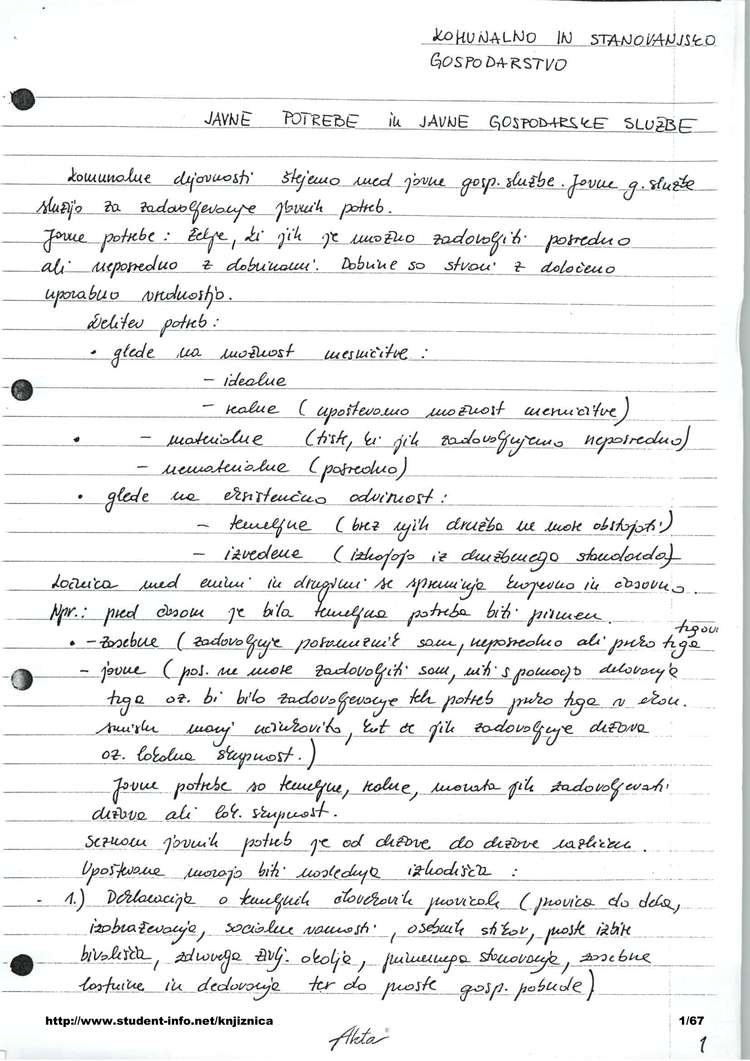 KOMUNALNO IN STANOVANJSKO
GOSPODARSTVO
JAVNE POTREBE in JAVNE GOSPODARSKE SLUŽBE
Komunalne dejavnosti štejemo med javne gosp. službe. Javne g. službe
služijo za zadovoljevanje javnih potreb.
Javne potrebe: želje, ki jih je možno zadovoljiti posredno
ali neposredno z dobrinami. Dobrine so stvari z določeno
uporabno vrednostjo.
Delitev potreb:
• glede na možnost uresničitve:
- idealne
- realne (upoštevamo možnost uresničitve)
• - materialne (tiste, ki jih zadovoljujemo neposredno)
- nematerialne (posredno)
• glede na eksistenčno odvisnost:
- temeljne (brez njih družba ne more obstojati)
- izvedene (izhajajo iz družbenega standarda)
Ločnica med enimi in drugimi se spreminja krajevno in časovno.
Npr.: pred časom je bila temeljna potreba biti pismen.
trgov
• - zasebne (zadovoljuje posameznik sam, neposredno ali preko trga
- javne (pos. ne more zadovoljiti sam, niti s pomočjo delovanja
trga oz. bi bilo zadovoljevanje teh potreb preko trga v ekon.
smislu manj učinkovito, kot če jih zadovoljuje država
oz. lokalna skupnost.)
Javne potrebe so temeljne, realne, morata jih zadovoljevati
država ali lok. skupnost.
Seznam javnih potreb je od države do države različen.
Upoštevana morajo biti naslednja izhodišča:
- 1.) Deklaracija o temeljnih človekovih pravicah (pravica do dela,
izobraževanja, socialne varnosti, osebnih stikov, proste izbire
bivališča, zdravega življ. okolja, primernega stanovanja, zasebne
lastnine in dedovanja ter do proste gosp. pobude)
http://www.student-info.net/knjiznica
1/67
Akta
1